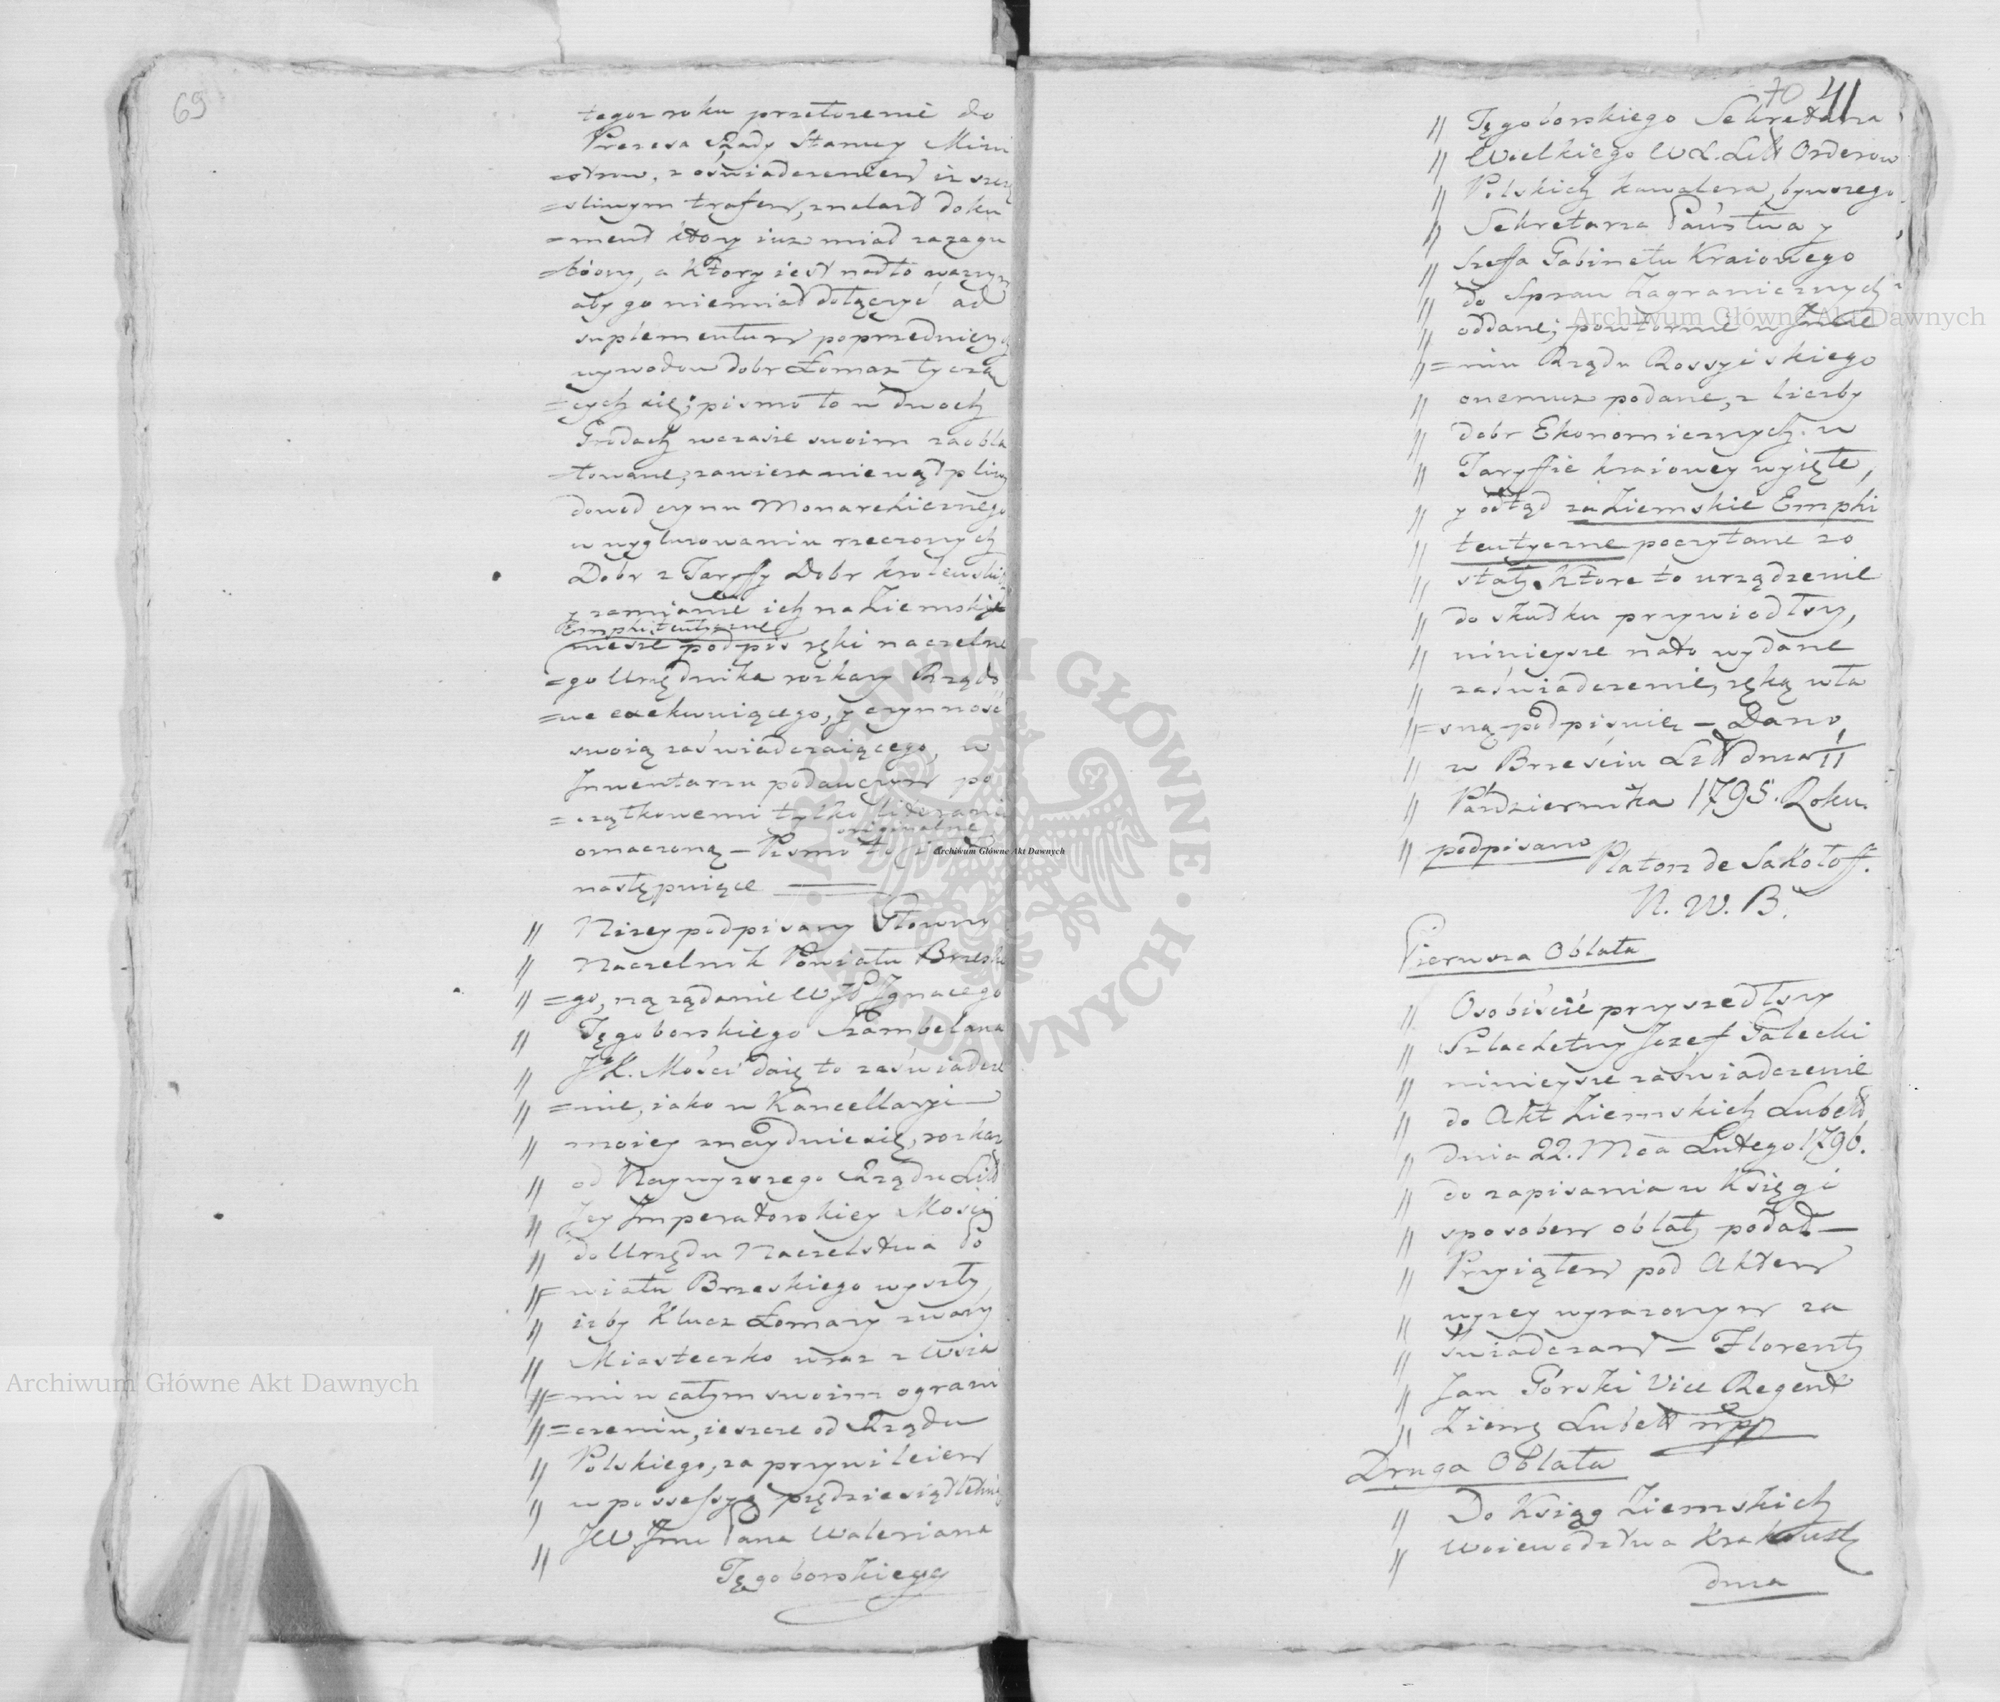 69
tegoz roku przełożenie do
Prezesa Rady Stanu y Mini
=strów, z oświadczeniem iz szczę
=śliwym trafem, znalazł doku
=ment który iuz miał za zagu
=biony, a który iest nadto ważny,
aby go niemiał dołączyć ad
suplementum poprzedniczych
wywodow dobr Łomaz tyczą
=cych się; pismo to w dwoch
Grodach wczasie swoim zaobla
=towane, zawiera niewątpliwy
dowod czynu Monarchicznego
w wyglusowaniu rzeczonych
Dobr z Taryffy Dobr krolewskich
y zamianie ich na Ziemskie
Emphiteutyczne
niesie podpis ręki naczelne
=go Urzędnika rozkazy Rządo
=we exekwuiącego, y czynność
swoią zaświadczaiącego, w
Inwentarzu podawczym po
=czątkowemi tylko literami
originalne
oznaczoną — Pismo to iest
następuiące
" Nizey podpisany Głowny
" Naczelnik Powiatu Brzeskie
" =go, na ządanie WJP Ignacego
" Tęgoborskiego Szambelana
" JK. Mości daię to zaświadcze
" =nie, iako w Kancellaryi
" moiey znayduie się, rozkaz
" od Naywyzszego Rządu Litt
" Jey Imperatorskiey Mości
" do Urzędu Naczelstwa Po
" =wiatu Brzeskiego wyszły
" izby Klucz Łomazy zwany
" Miasteczko wraz z Wsia
" =mi w całym swoim ograni
" =czeniu, ieszcze od Rządu
" Polskiego, za przywileiem
" w possessyę pędziesiątletnią
" JW Jmc Pana Waleriana
Tęgoborskiego
70 41
" Tęgoborskiego Sekretarza
" Wielkiego W.X.Litt Orderow
" Polskich kawalera, bywszego
" Sekretarza Państwa y
" Szeffa Gabinetu Kraiowego
" do Spraw Zagranicznych
" oddane; powtornie w Imie
" =niu Rządu Rossyiskiego
" onemuz podane, z liczby
" dobr Ekonomicznych w
" Taryffie kraiowey wyięte,
" y odtąd za Ziemskie Emphi
" teutyczne poczytane zo
" stały. Które to urządzenie
" do skutku przywiodłszy,
" ninieysze nato wydane
" zaświadczenie, ręką wła
" =sną podpisuię — Dano
" w Brześciu Litt dnia 11
" Pazdziernika 1795. Roku.
" podpisano Platon de Sakołoff.
N. W. B.
Pierwsza Oblata
" Osobiście przyszedłszy
" Szlachetny Jozef Gałecki
" ninieysze zaświadczenie
" do Akt Ziemskich Lubell
" dnia 22. Mca Lutego 1796.
" do zapisania w Księgi
" sposobem oblaty podał —
" Przyiąłem pod Aktem
" wyzey wyrazonym za
" świadczam — Florenty
" Jan Górski Vice Regent
" Ziemˢ Lubell mpp
Druga Oblata
" Do Ksiąg Ziemskich
" Woiewodztwa Krakowskˢ
dnia
Archiwum Główne Akt Dawnych
Archiwum Główne Akt Dawnych
Archiwum Główne Akt Dawnych
ARCHIWUM GŁÓWNE AKT DAWNYCH